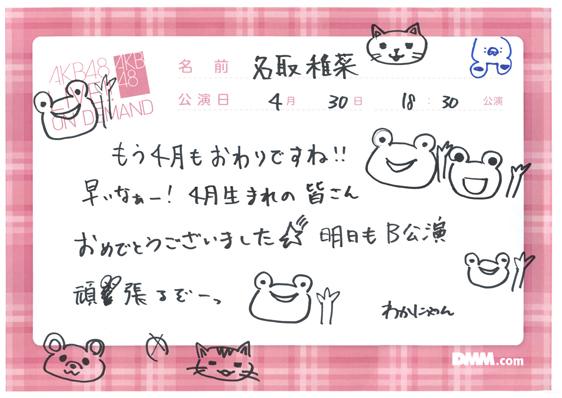 AKB48
LIVE!!
ON DEMAND
AKB
48
名前 名取稚菜
公演日 4月 30日 18:30 公演
もう4月もおわりですね!!
早いなぁー! 4月生まれの皆さん
おめでとうございました☆ 明日もB公演
頑張るぞーっ
わかにゃん
DMM.com